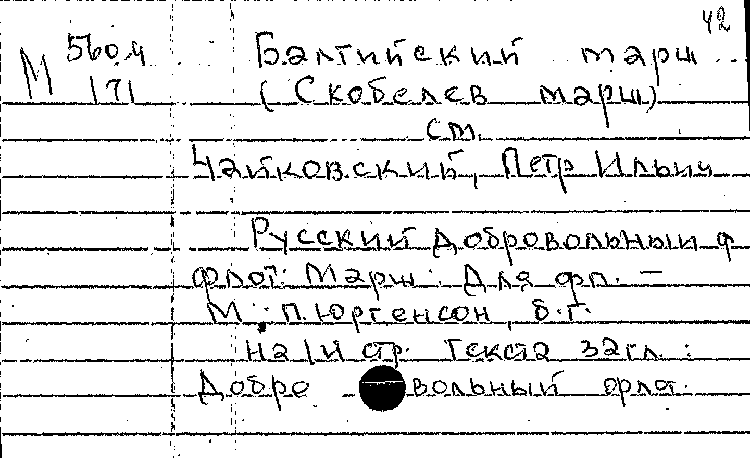 42
М 560.4 Балтийский марш
171 (Скобелев марш)
см.
Чайковский, Петр Ильич
Русский добровольный ф
флот: Марш: Для фп. –
М.: П. Юргенсон, б.г.
На 1й стр. текста загл.:
Добровольный флот.